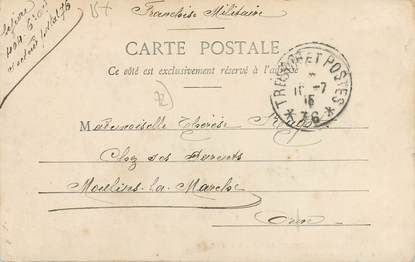 Franchise Militaire
CARTE POSTALE
Ce côté est exclusivement réservé à l'adresse
TRESOR ET POSTES
16 -7
15
* 76 *
72
Mademoiselle Thérèse
Chez ses Parents
Moulins-la-Marche
Orne